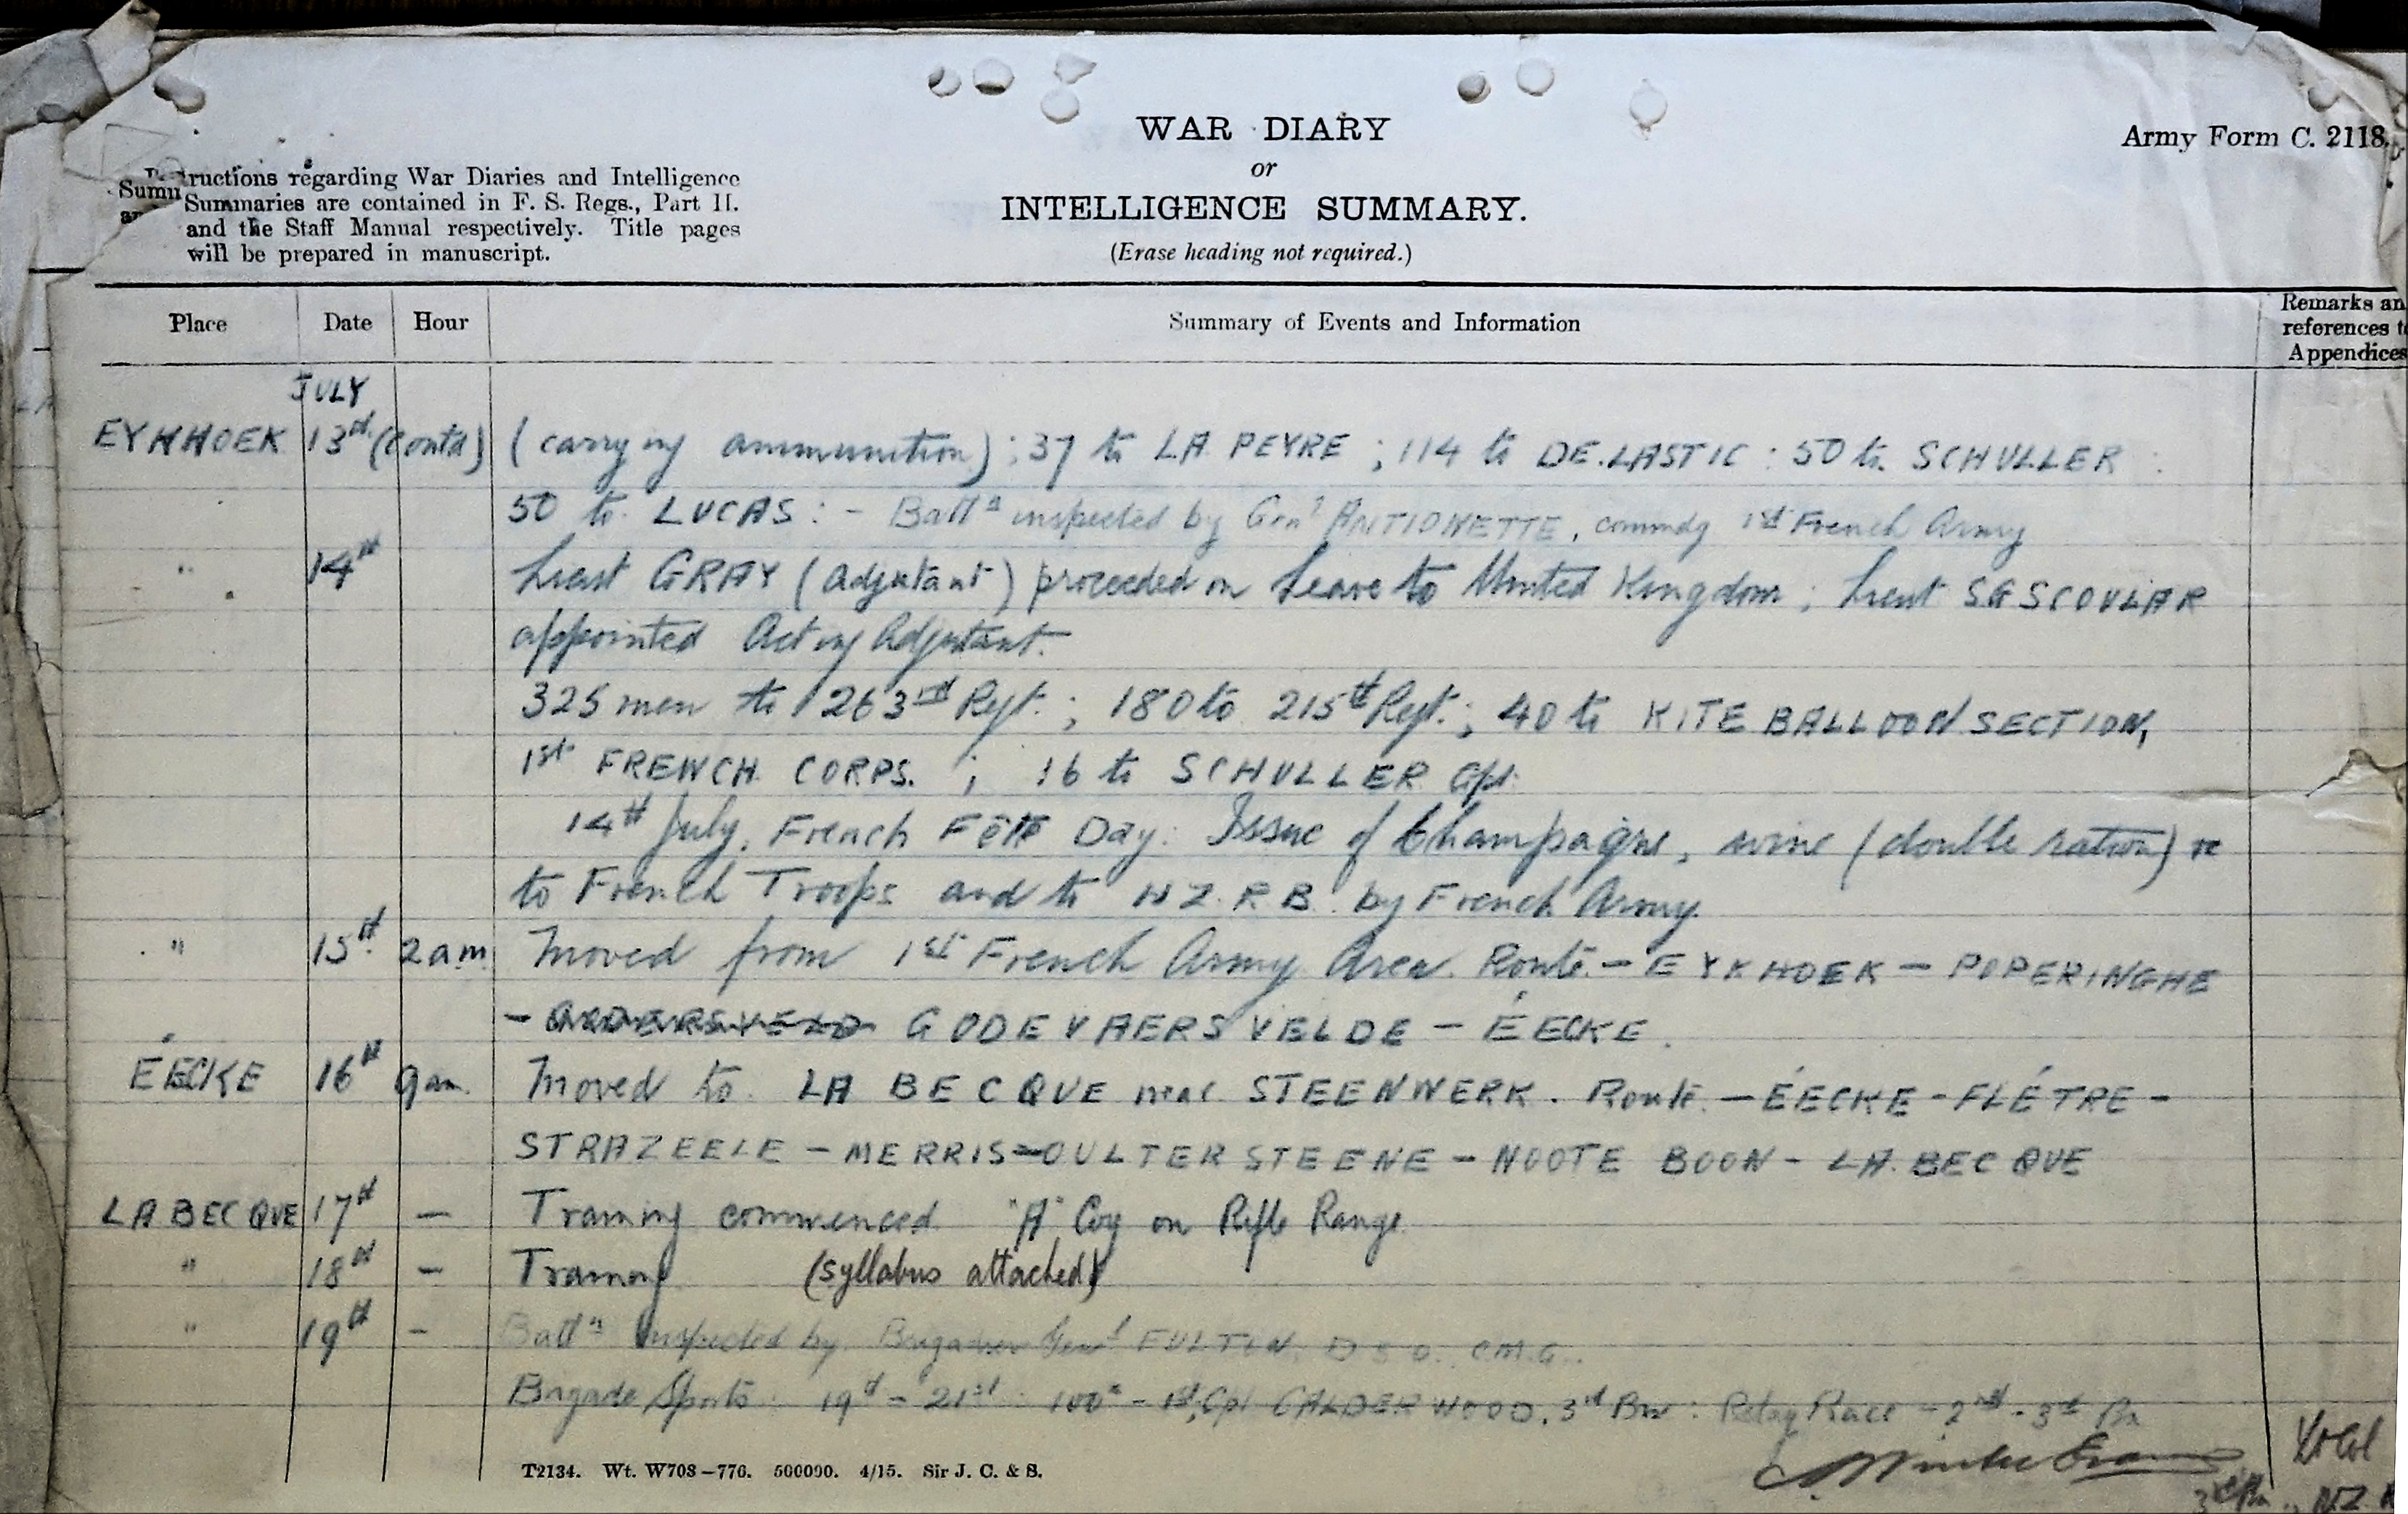 WAR DIARY
or
INTELLIGENCE SUMMARY.
(Erase heading not required.)
Army Form C. 2118.
ructions regarding War Diaries and Intelligence
Summaries are contained in F. S. Regs., Part II.
and the Staff Manual respectively. Title pages
will be prepared in manuscript.
Place Date Hour Summary of Events and Information Remarks an
references t
Appendices
JULY
EYHHOEK 13th (contd) (carrying ammunition) ; 37 to LA PEYRE ; 114 to DE.LASTIC : 50 to SCHULLER :
50 to LUCAS : - Battn inspected by Genl ANTIONETTE, commdg 1st French Army
" 14th Lieut GRAY (adjutant) proceeded on Leave to United Kingdom ; Lieut SGSCOULAR
appointed Acting Adjutant.
325 men to 263rd Regt. ; 180 to 215th Regt. ; 40 to KITE BALLOON SECTION,
1st FRENCH CORPS. ; 16 to SCHULLER Gpt.
14th July. French FÊTE Day. Issue of Champagne, wine (double ration)
to French Troops and to N Z. R B. by French Army.
" 15th 2am Moved from 1st French Army Area. Route. - EYKHOEK - POPERINGHE
- GODEVAERSVELDE - ÉECKE.
ÉECKE 16th 9am Moved to LA BECQUE near STEENWERK. Route. - ÉECKE - FLÉTRE -
STRAZEELE - MERRIS - OULTERSTEENE - NOOTE BOON - LA. BECQUE
LA BECQUE 17th - Training commenced "A" Coy on Rifle Range.
" 18th - Training (syllabus attached)
" 19th - Battn Inspected by Brigadier Genl FULTON, D S O. C.M.G..
Brigade Sports : 19th - 21st : 100x - 1st, Cpl CALDERWOOD. 3rd Bn : Relay Race - 2nd - 3rd Bn
T2134. Wt. W708-776. 500000. 4/15. Sir J. C. & S.
Winter Evans
3rd Bn N.Z.